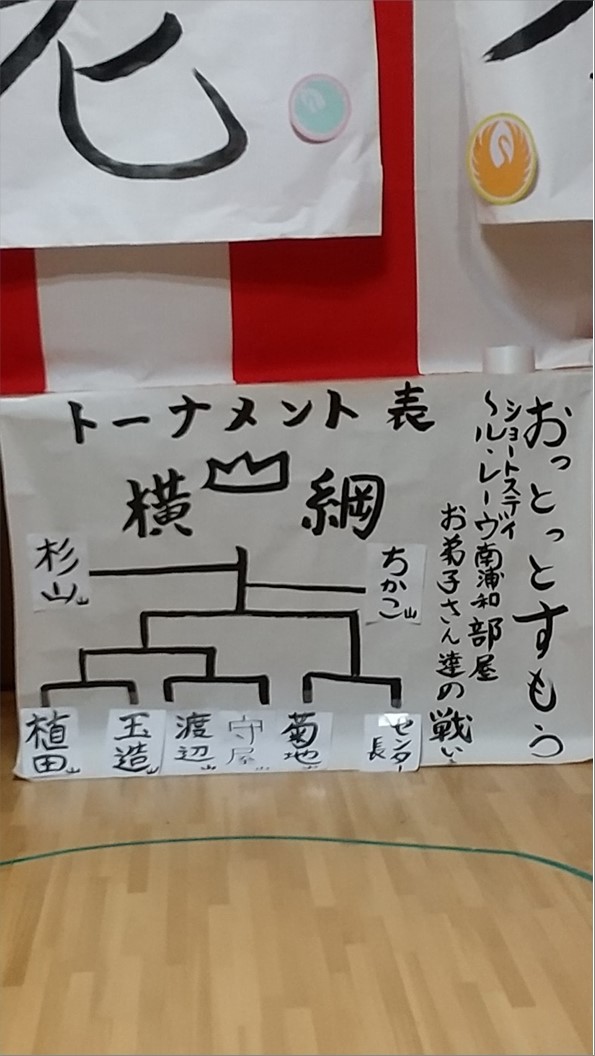 老
トーナメント表
横綱
おっとっとすもう
ショートステイ
〜ル・レーヴ南浦和部屋
お弟子さん達の戦い
杉山山
ちかこ山
植田山
玉造山
渡辺山
守屋山
菊地山
センター長